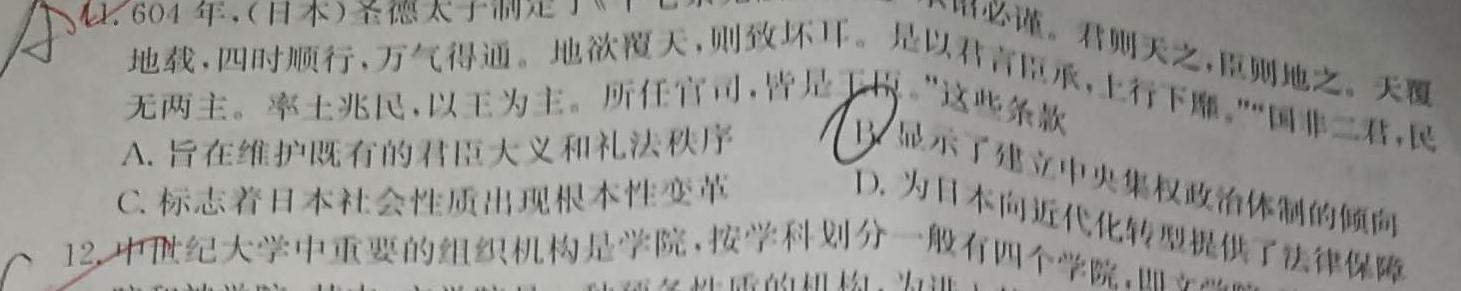 11. 604 年,(日本)圣德太子制定了《十七条 诏必谨。君则天之,臣则地之。天覆
地载,四时顺行,万气得通。地欲覆天,则致坏耳。是以君言臣承,上行下靡。”“国非二君,民
无两主。率土兆民,以王为主。所任官司,皆是王臣。”这些条款
A. 旨在维护既有的君臣大义和礼法秩序 B. 显示了建立中央集权政治体制的倾向
C. 标志着日本社会性质出现根本性变革 D. 为日本向近代化转型提供了法律保障
12. 中世纪大学中重要的组织机构是学院,按学科划分一般有四个学院,即文学院